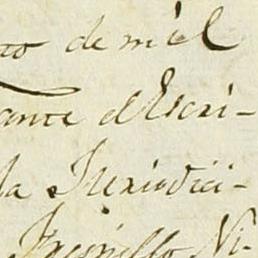 de mil
ante el Escri-
la Jurisdici-
Fresnillo Ni-